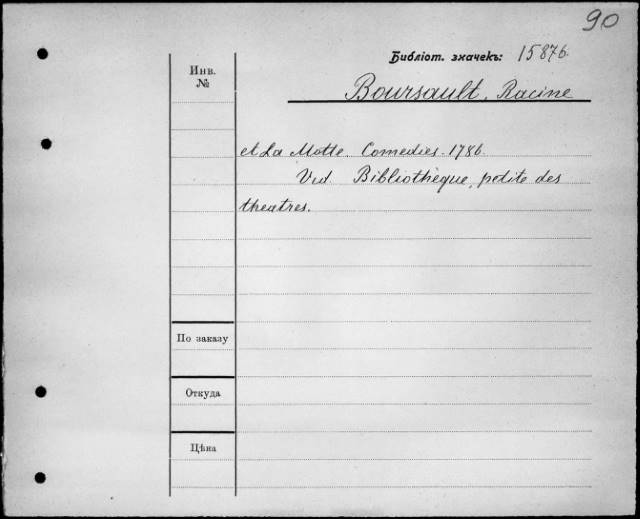 90
Библіот. значекъ: 15876.
Инв.
№
Boursault, Racine
et La Motte. Comedies. 1786.
Vid Bibliothèque, petite des
theatres.
По заказу
Откуда
Цѣна